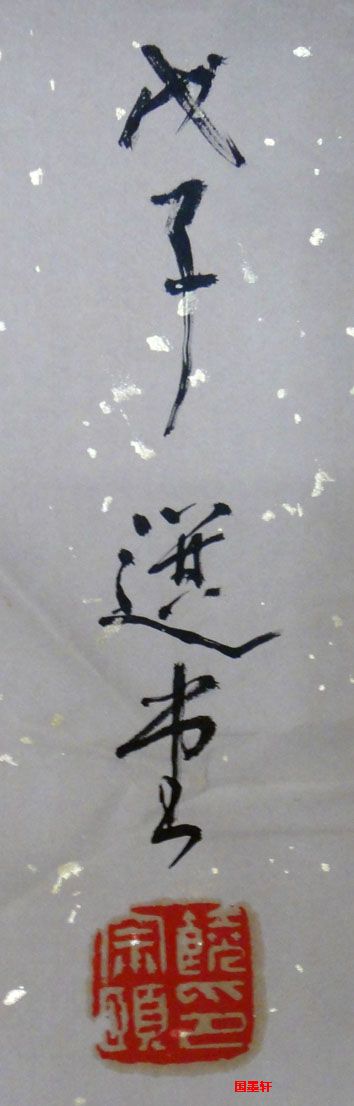 戊子
選堂
饒宗頤印
国墨轩